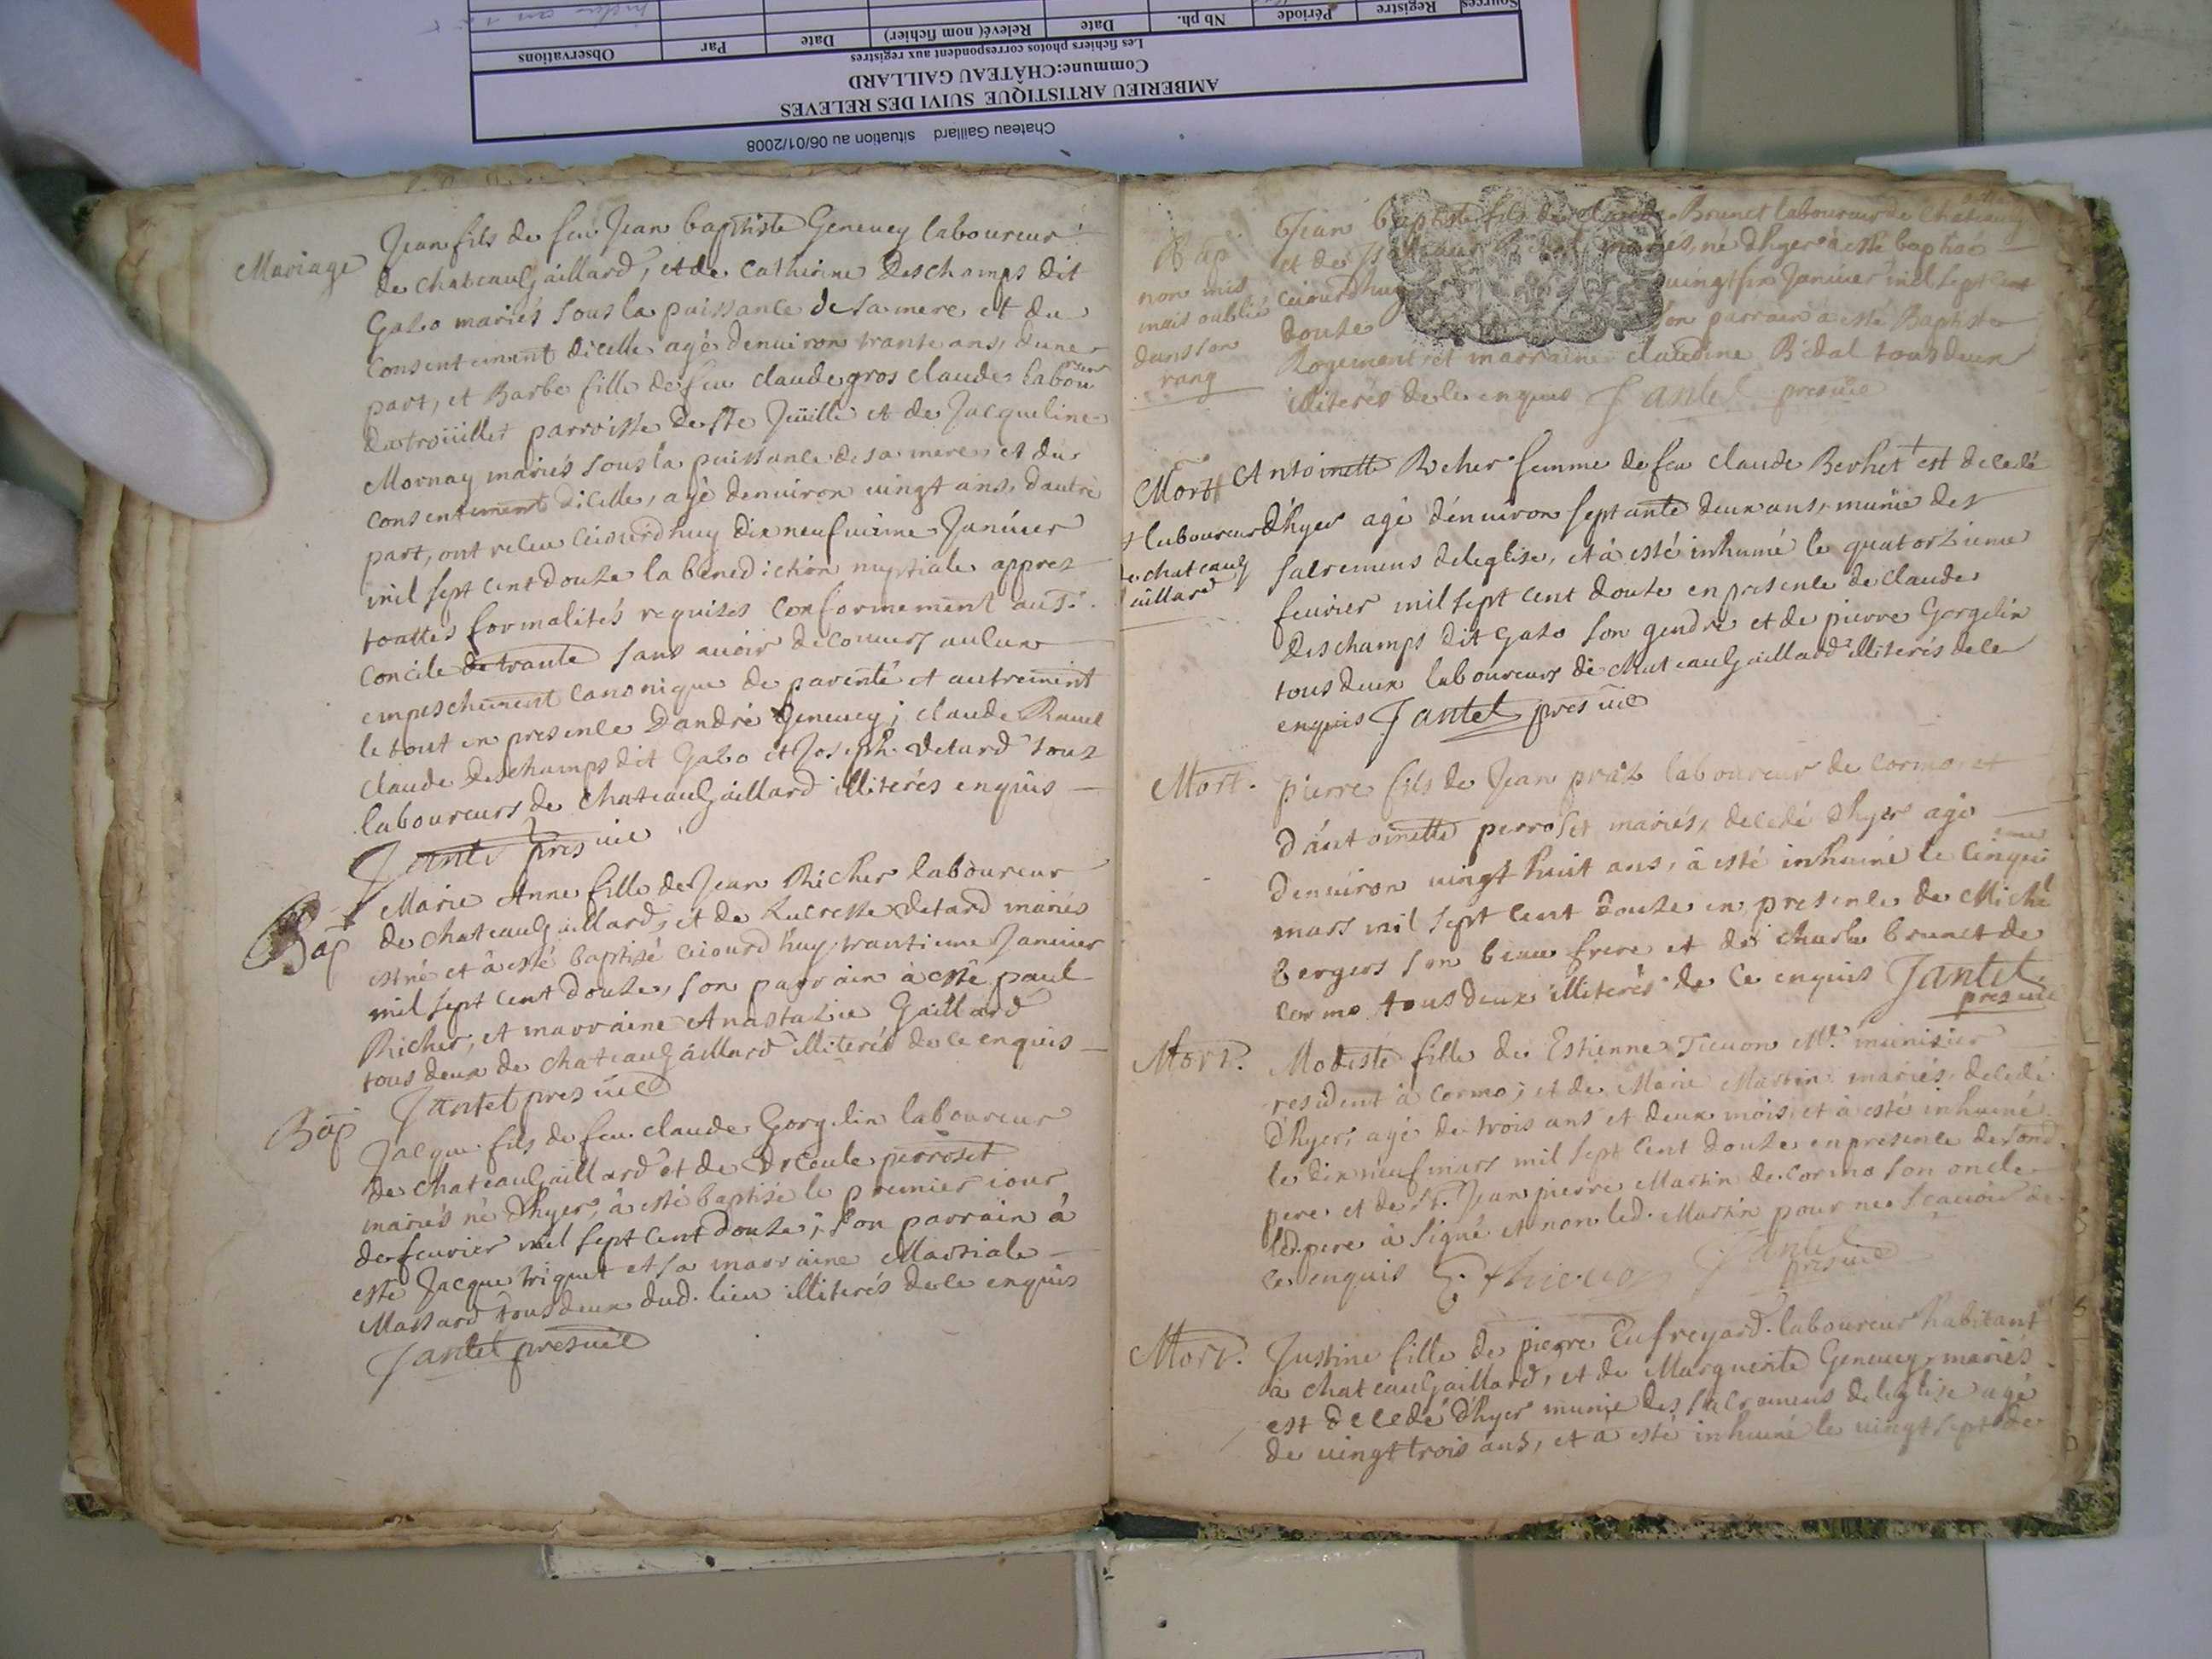 Chateau Gaillard situation au 06/01/2008
AMBERIEU ARTISTIQUE SUIVI DES RELEVES
Commune:CHÂTEAU GAILLARD
Les fichiers photos correspondent aux registres
Sources Registre Période Nb ph. Date Relevé( nom fichier) Date Par Observations
Mariage
Jean fils de feu Jean baptiste Geneuey laboureur
de chateaugaillard, et de Catherine Deschamps dit
Gazo mariés sous la puissance de sa mere et du
Consentement dicelle agé denuiron trante ans, dune
part, et Barbe fille de feu claude gros claude labou
reur
parroisse de ste Juille et de Jacqueline
Mornay mariés sous la puissance de sa mere et du
consentement dicelle, agé denuiron uingt ans, dautre
part, ont receu ceiourdhuy dixneufuieme Januier
mil sept cent douze la benediction nuptiale apprez
touttes formalités requises conformement au St.
concile de trante sans auoir decouuert aulcun
empeschement canonique de parenté et autrement
le tout en presence Dandré Geneuey; claude Rauel
claude Deschamps dit Gazo et Joseph detard tous
laboureurs de chateaugaillard illiterés enquis
Jantet pres uic
Bap
Marie Anne fille de Jean Richer laboureur
de chateaugaillard, et de Lucresse detard mariés
est né et à esté baptisé ceiourdhuy trantieme Januier
mil sept cent douze, son parrain à esté paul
Richer, et marraine Anastazie Gaillard
tous deux de chateaugaillard illiterés de ce enquis
Jantet pres uic
Bap
Jacque fils de feu claude Gorgelin laboureur
de chateaugaillard et de perroset
mariés né dhyer, à esté baptisé le premier iour
de feurier mil sept cent douze; son parrain à
esté Jacque triquet et sa marraine Martiale
Massard tous deux dud. lieu illiterés de ce enquis
Jantet pres uic
Bap
non mis
mais oublié
dans son
rang
Jean baptiste fils de claude Brunet laboureur de chateaug
et de mariés, né dhyer à esté baptisé
ceiourdhuy uingt six Januier mil sept cent
douze son parrain à esté Baptiste
Rogemont et marraine claudine Bidal tous deux
illiterés de ce enquis Jantet pres uic
Mort
Antoinette Richer femme de feu claude Berhet + est decedé
+ laboureur
de chateaug
aillard
dhyer agé denuiron septante deux ans, munie des
sacremens deleglise, et à esté inhumé le quatorzieme
feurier mil sept cent douze en presence de claude
Deschamps dit Gazo son gendre et de pierre Gorgelin
tous deux laboureurs de chateaugaillard illiterés de ce
enquis Jantet pres uic
Mort.
pierre fils de Jean praz laboureur de cormoz et
dantoinette perroset mariés, decedé dhyer agé
denuiron uingt huit ans, à esté inhumé le cinqui
eme
mars mil sept cent douze en presence de Michel
bergers son beau frere et de charle brunet de
cormo tous deux illiterés de ce enquis Jantet
pres uic
Mort.
Modeste fille de Estienne Tieuon Mr. munisier
resident à cormo; et de Marie Martin mariés, decedé
dhyer, agé de trois ans et deux mois, et à esté inhumé
le dix neuf mars mil sept cent douze en presence de sond.
pere et de St. Jean pierre Martin de cormo son oncle
led. pere à signé et non led. Martin pour ne scauoir de
ce enquis Jantet
pres uic
Mort.
Justine fille de pierre Eufreyard laboureur habitant
à chateaugaillard, et de Marguerite Geneuey mariés
est decedé dhyer munie des sacremens deleglise agé
de uingt trois ans, et à esté inhumé le uingt sept de